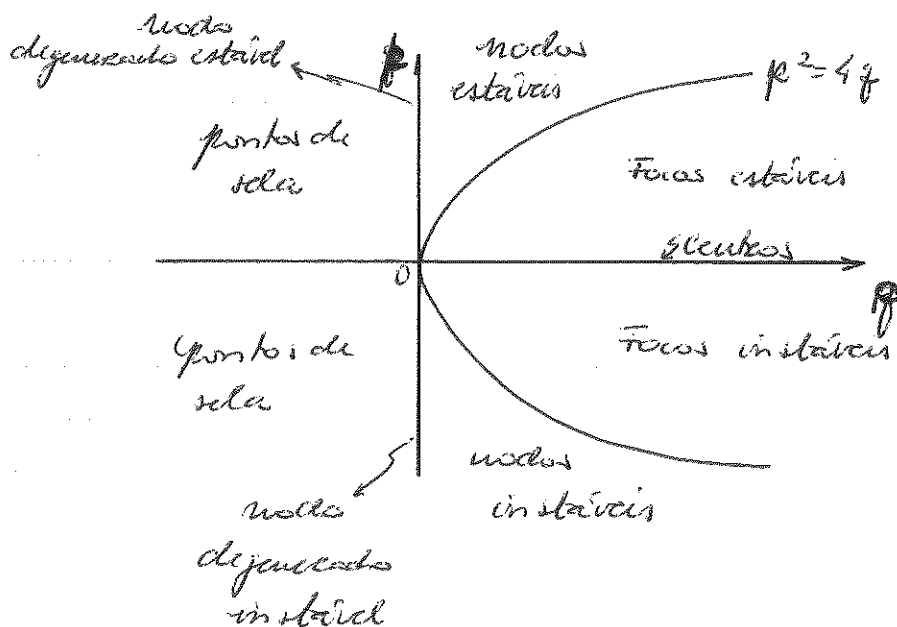 nodo
degenerado estável
p
nodos
estáveis
p² = 4q
pontos de
sela
Focos estáveis
centros
0
q
pontos de
sela
Focos instáveis
nodos
instáveis
nodo
degenerado
instável